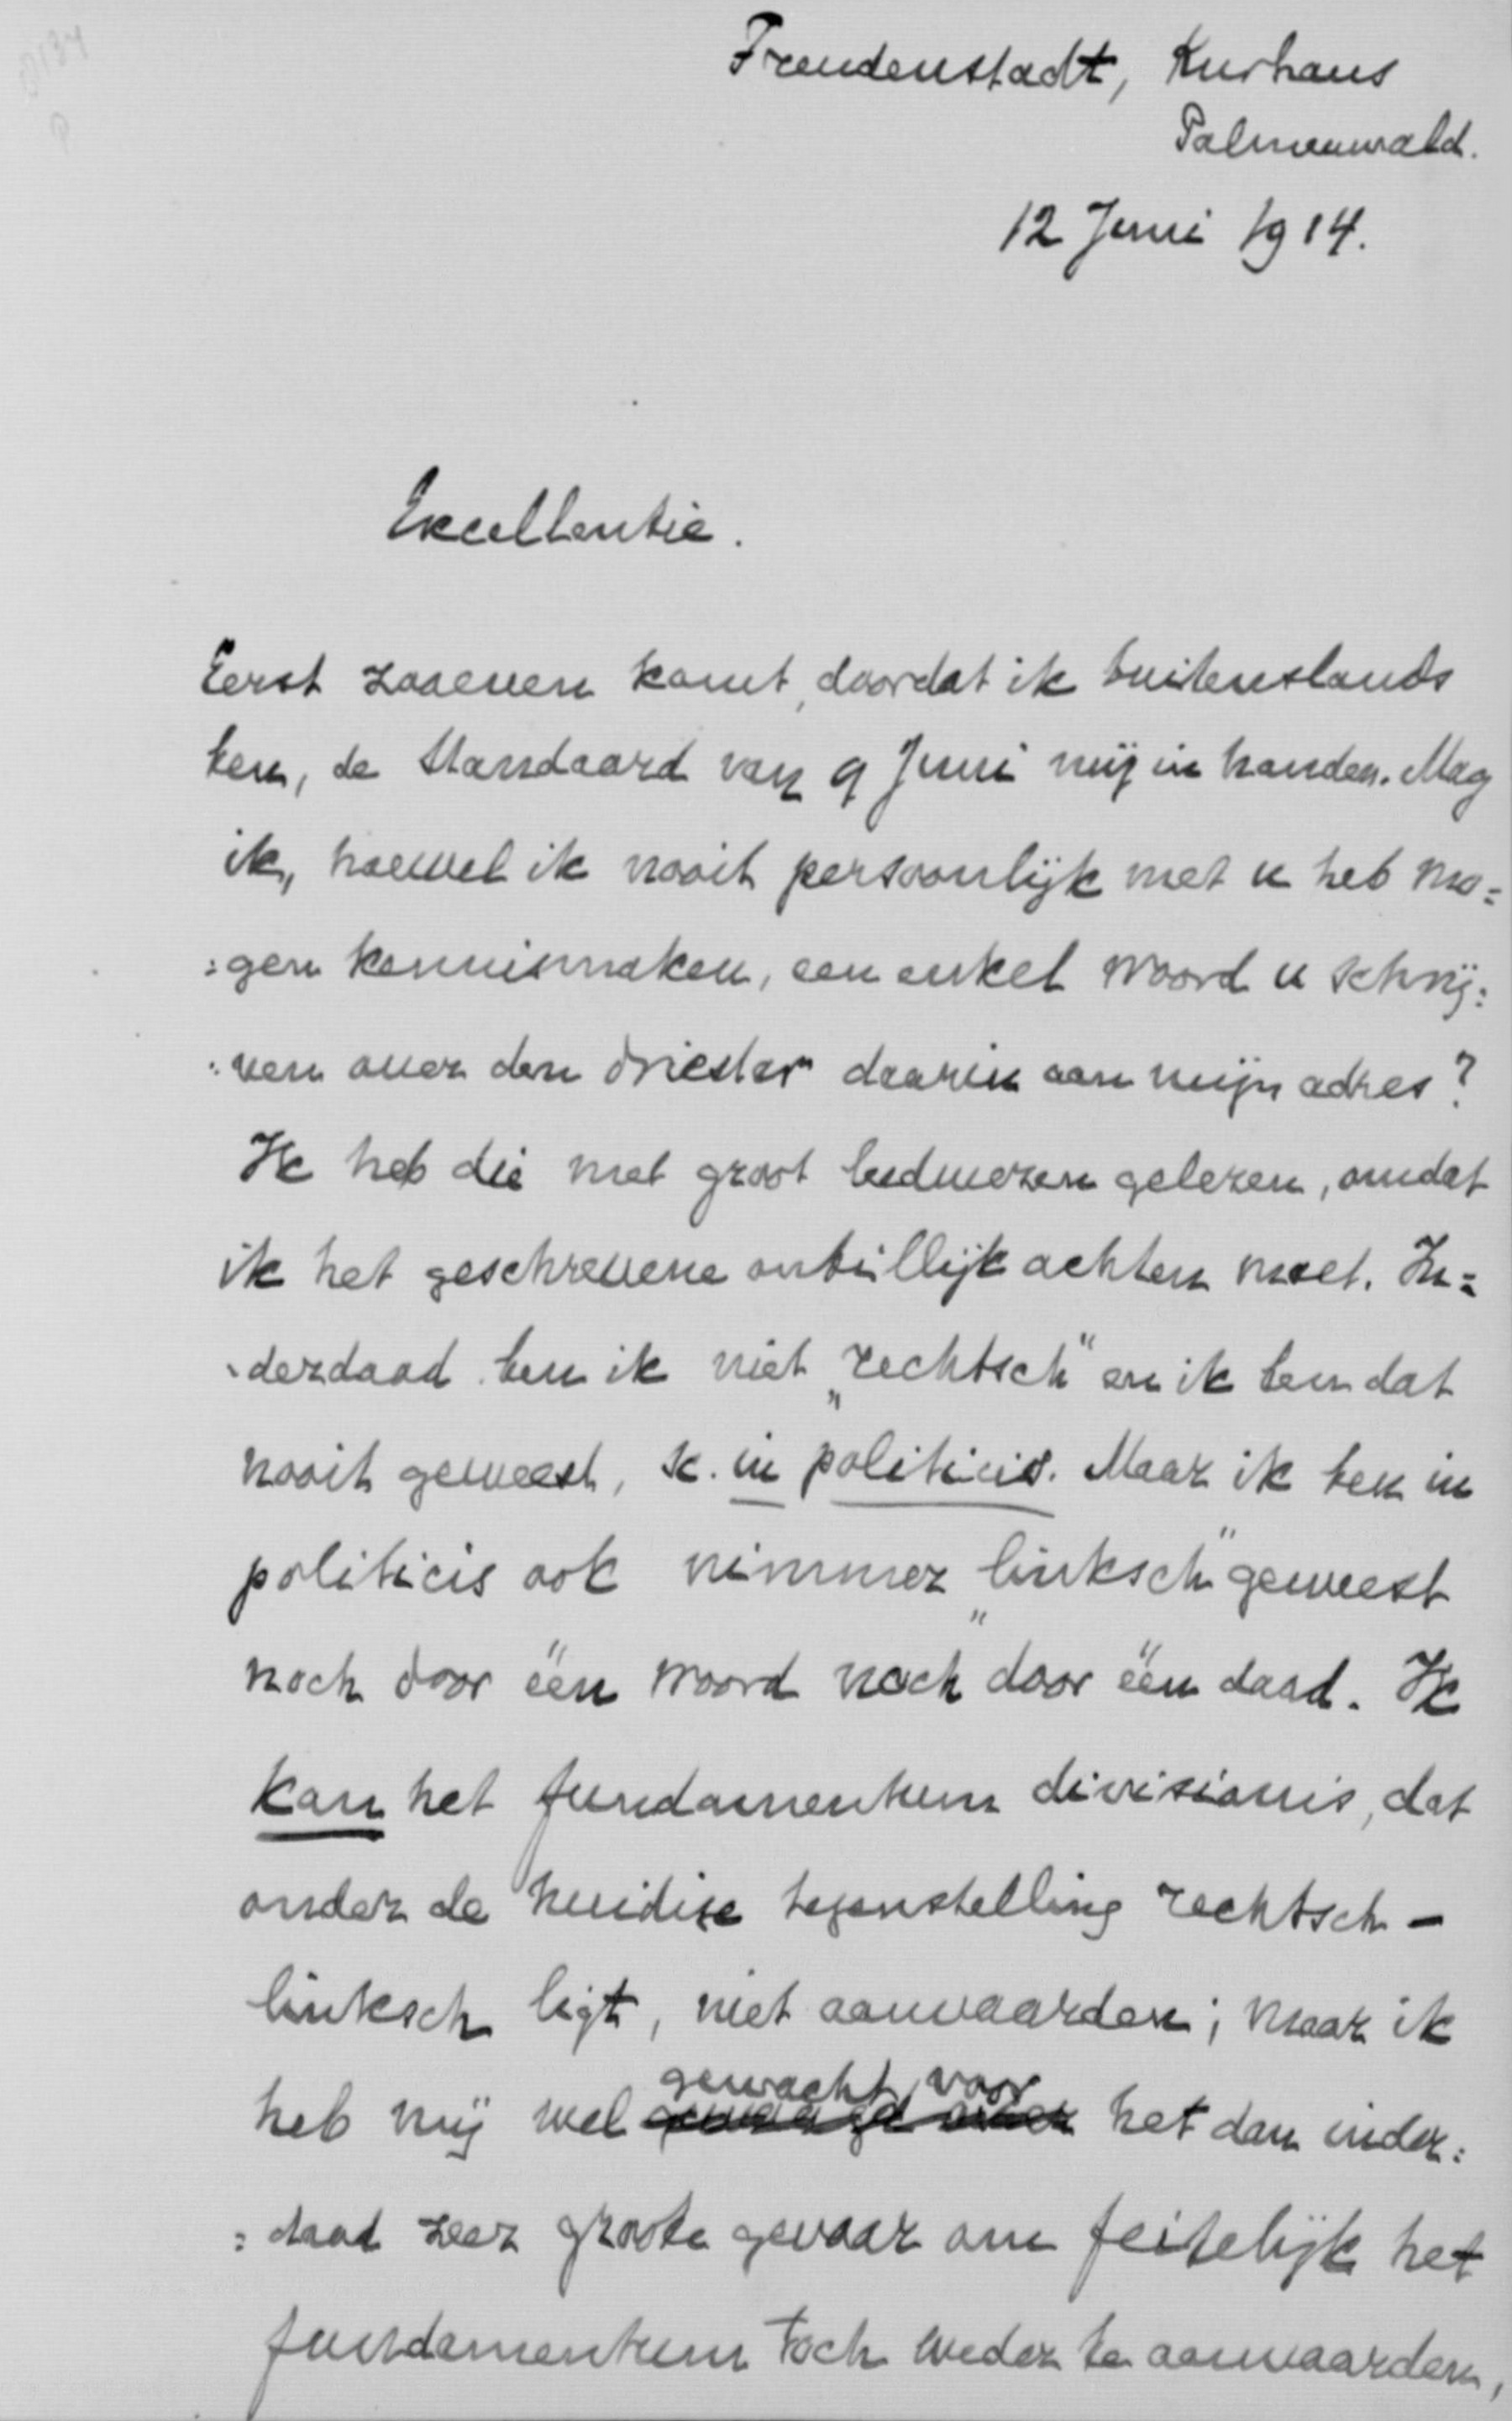 Freudenstadt, Kurhaus
Palmenwald.
12 Juni 1914.
Excellentie.
Eerst zooeven komt, doordat ik buitenslands
ben, de Standaard van 9 Juni mij in handen. Mag
ik, hoewel ik nooit persoonlijk met u heb mo=
=gen kennismaken, een enkel woord u schrij=
=ven over den driester daarin aan mijn adres?
Ik heb die met groot leedwezen gelezen, omdat
ik het geschrevene onbillijk achten moet. In=
=derdaad ben ik niet „rechtsch" en ik ben dat
nooit geweest, sc. in politicis. Maar ik ben in
politicis ook nimmer „linksch" geweest
noch door één woord noch door één daad. Ik
kan het fundamentum divisionis, dat
onder de huidige tegenstelling rechtsch –
linksch ligt, niet aanvaarden; maar ik
gewacht voor
heb mij wel het dan inder=
=daad zeer groote gevaar om feitelijk het
fundamentum toch weder te aanvaarden,